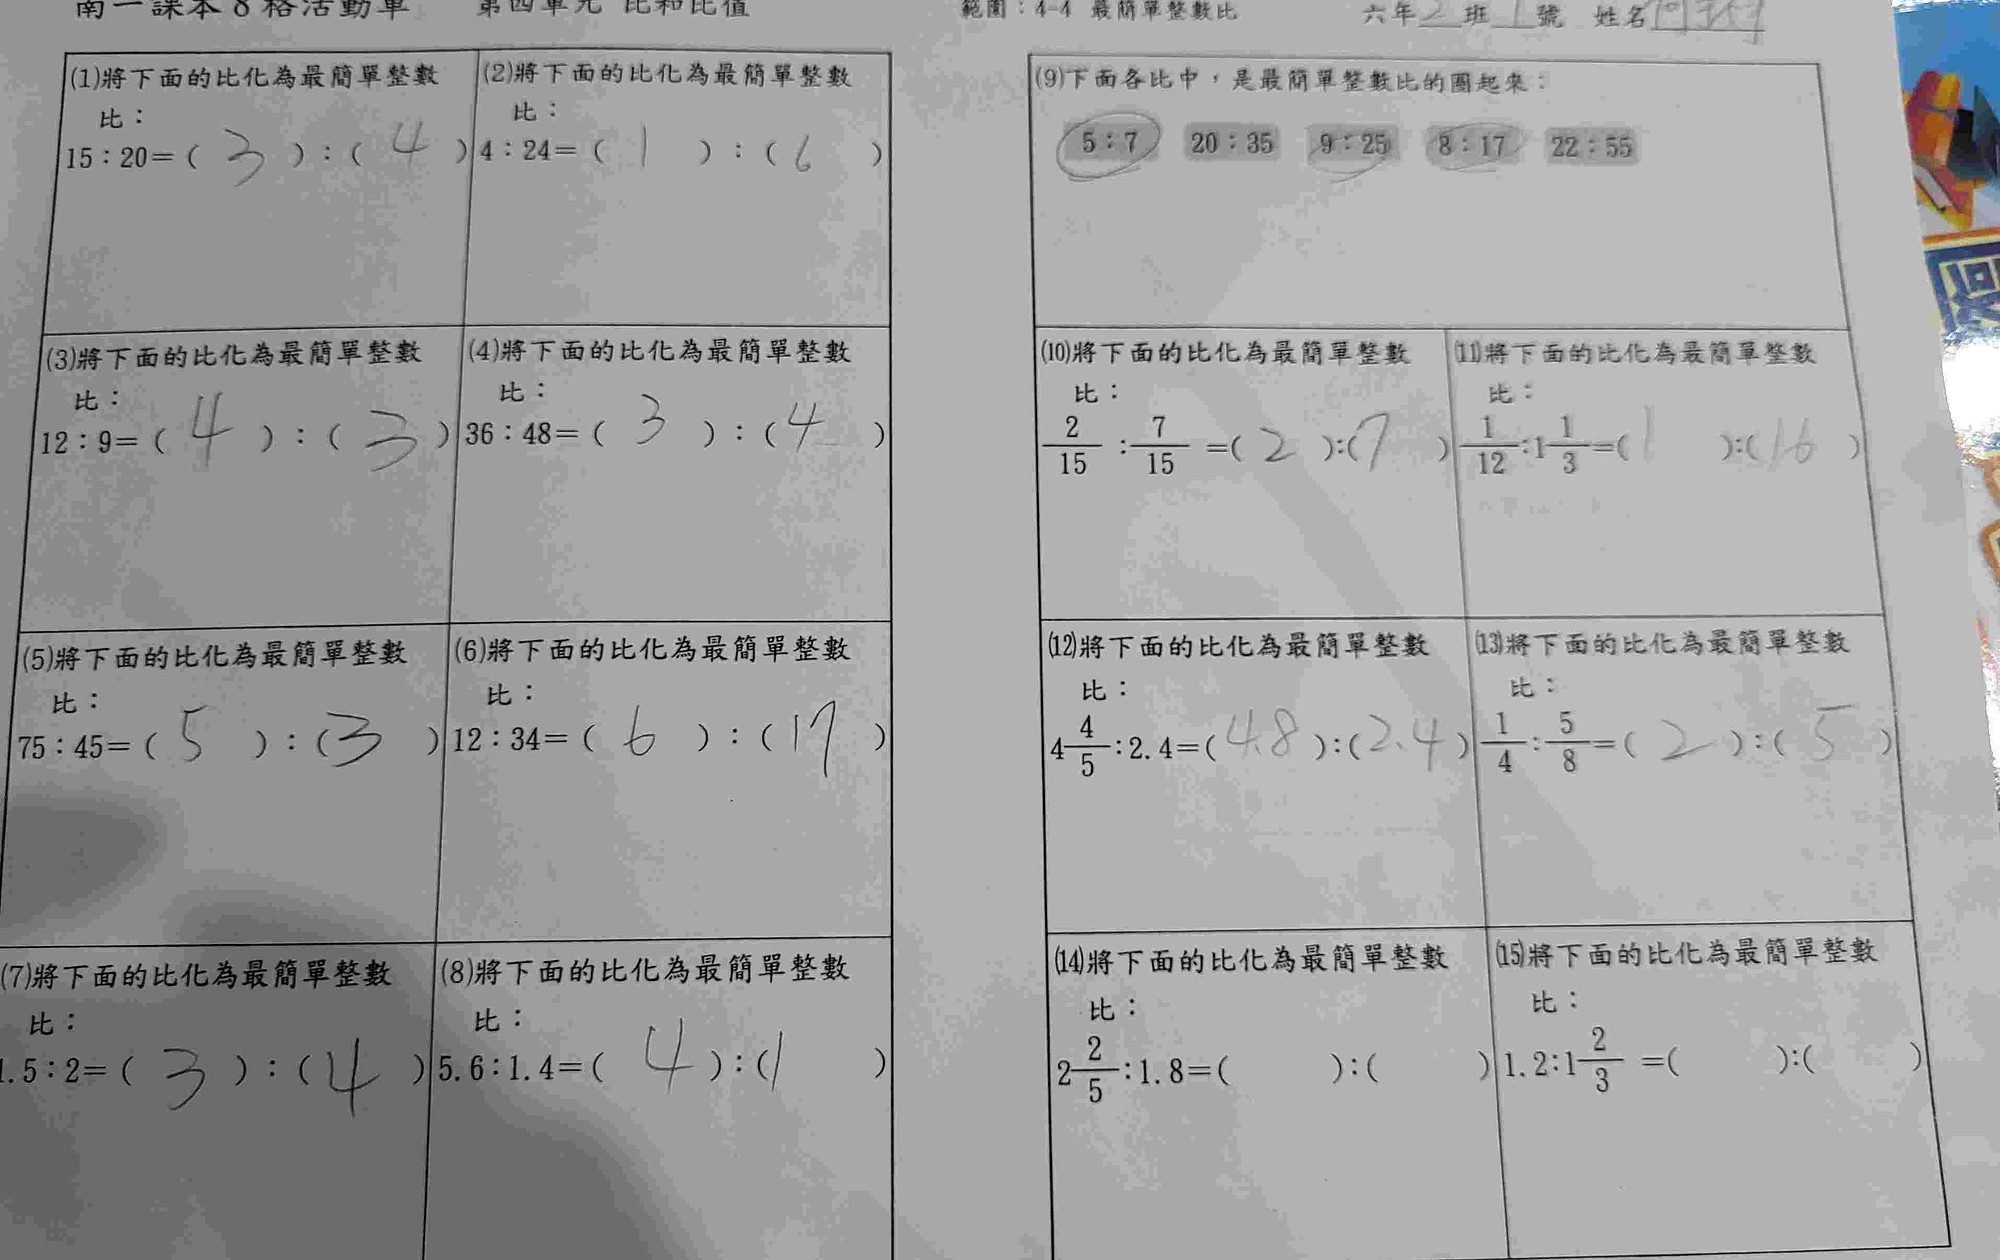 南一課本8格活動單 第四單元 比和比值
(1)將下面的比化為最簡單整數
比：
15：20=( 3 )：( 4 )
(2)將下面的比化為最簡單整數
比：
4：24=( 1 )：( 6 )
(3)將下面的比化為最簡單整數
比：
12：9=( 4 )：( 3 )
(4)將下面的比化為最簡單整數
比：
36：48=( 3 )：( 4 )
(5)將下面的比化為最簡單整數
比：
75：45=( 5 )：( 3 )
(6)將下面的比化為最簡單整數
比：
12：34=( 6 )：( 17 )
(7)將下面的比化為最簡單整數
比：
1.5：2=( 3 )：( 4 )
(8)將下面的比化為最簡單整數
比：
5.6：1.4=( 4 )：( 1 )
範圍：4-4 最簡單整數比 六年2班1號 姓名
(9)下面各比中，是最簡單整數比的圈起來：
5：7 20：35 9：25 8：17 22：55
(10)將下面的比化為最簡單整數
比：
2/15：7/15=( 2 )：( 7 )
(11)將下面的比化為最簡單整數
比：
1/12：1 1/3=( 1 )：( 16 )
(12)將下面的比化為最簡單整數
比：
4 4/5：2.4=( 4.8 )：( 2.4 )
(13)將下面的比化為最簡單整數
比：
1/4：5/8=( 2 )：( 5 )
(14)將下面的比化為最簡單整數
比：
2 2/5：1.8=( )：( )
(15)將下面的比化為最簡單整數
比：
1.2：1 2/3=( )：( )